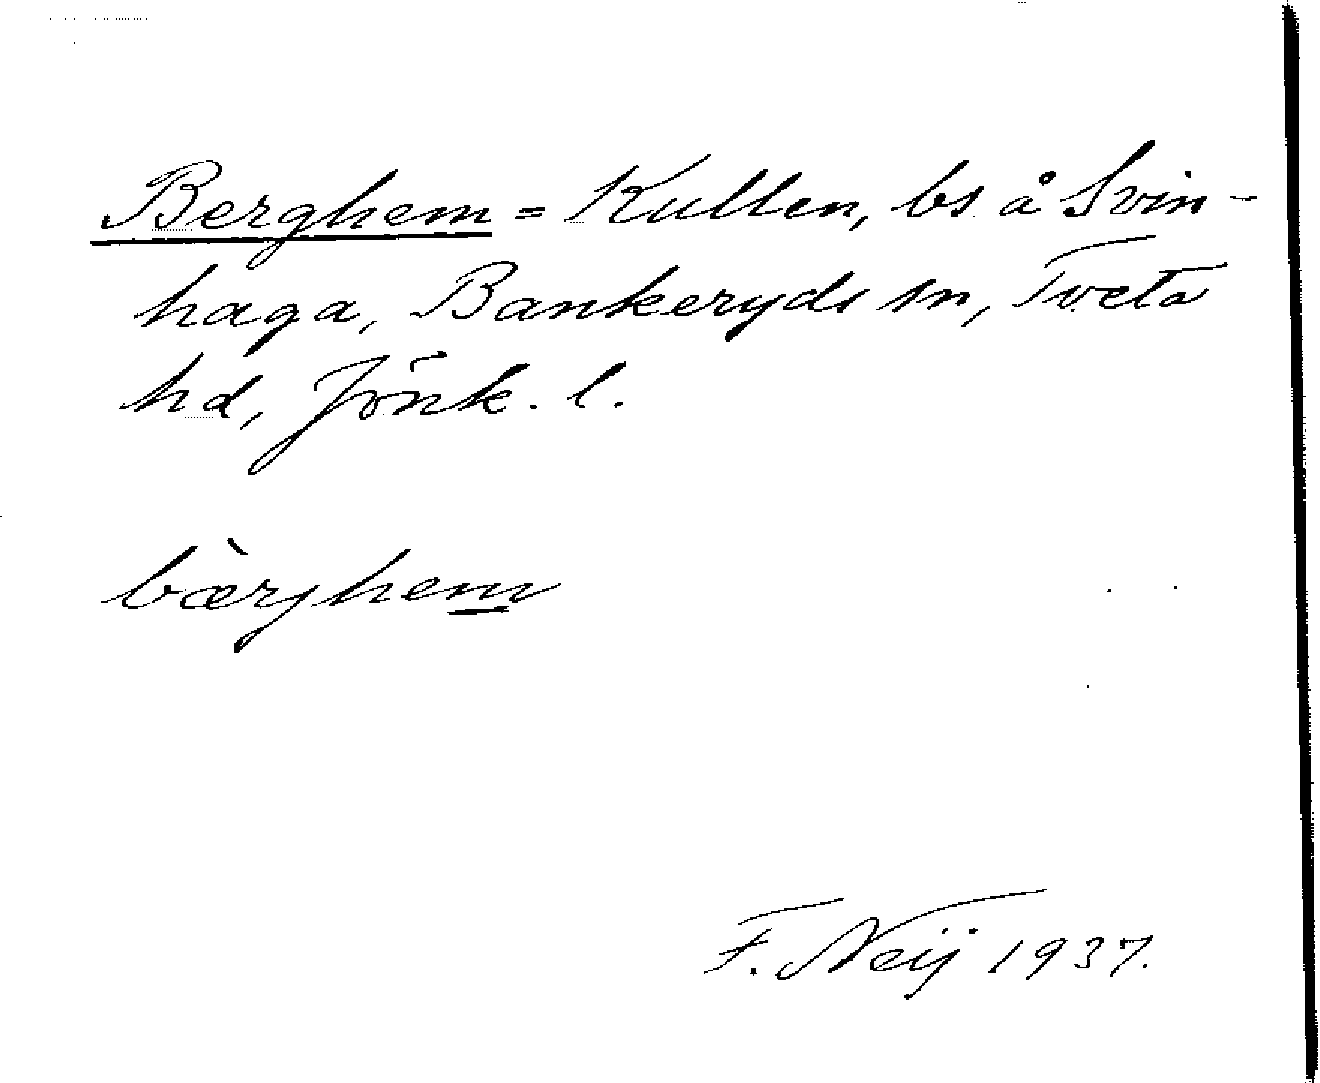 Berghem = Kullen, bs å Svin-
haga, Bankeryds sn, Tveta
hd, Jönk. l.
bæ̀rjhem
F. Neij 1937.